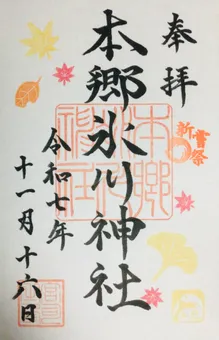 奉拝
本郷氷川神社
令和七年
十一月十六日